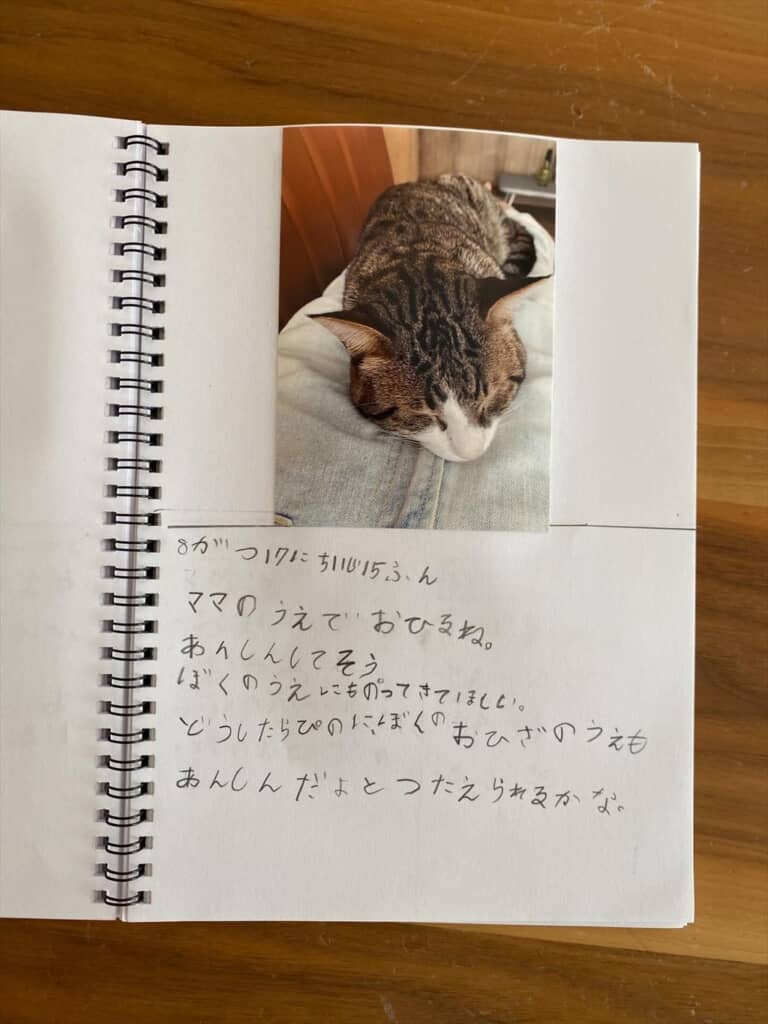 8がつ17にち11じ15ふん
ママのうえでおひるね。
あんしんしてそう
ぼくのうえにものってきてほしい。
どうしたらぴのに、ぼくのおひざのうえも
あんしんだよとつたえられるかな。